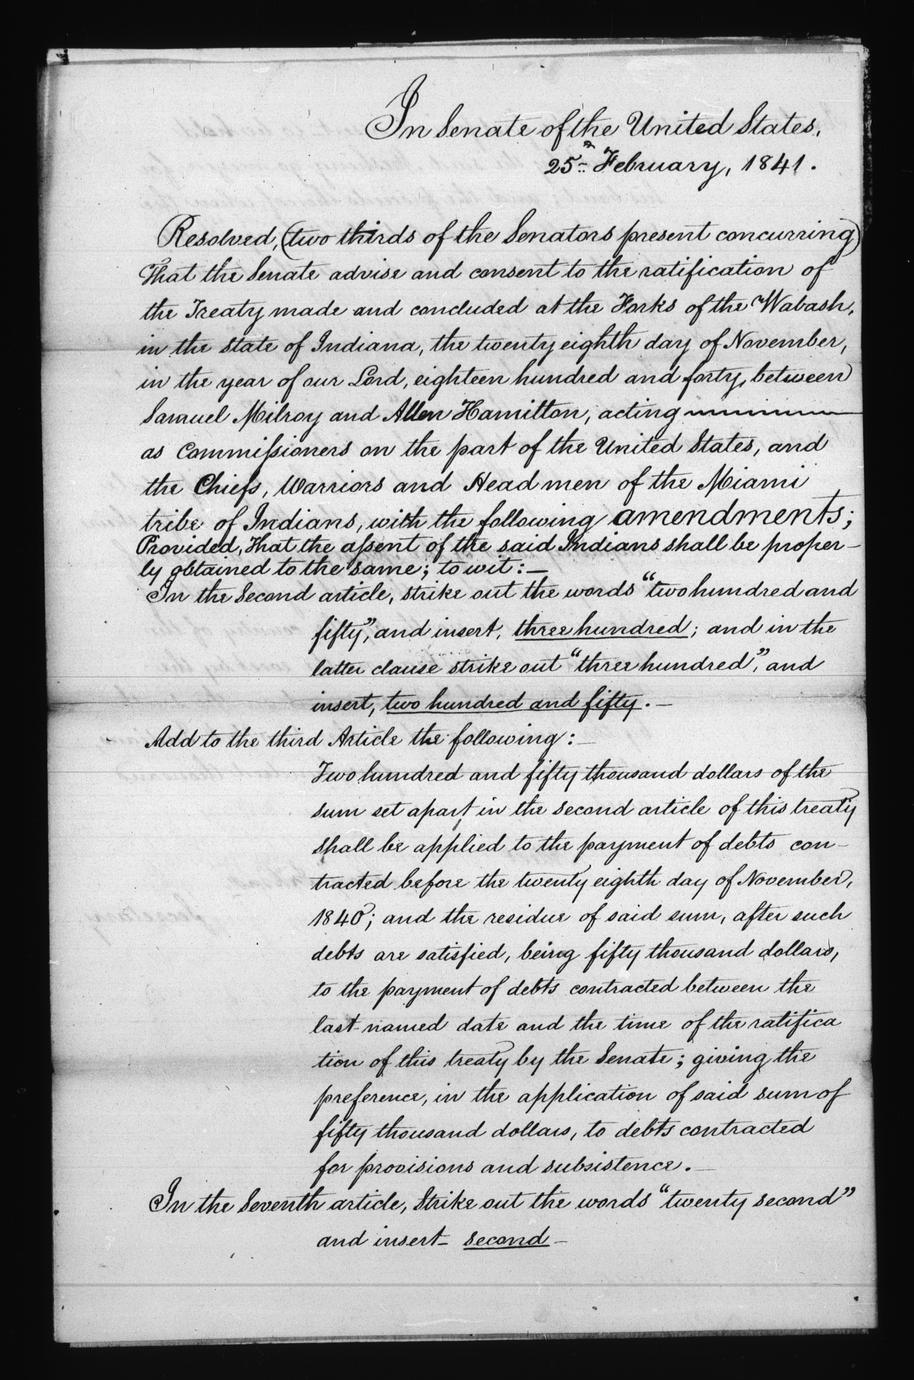 In Senate of the United States,
25th February, 1841.
Resolved, (two thirds of the Senators present concurring)
That the Senate advise and consent to the ratification of
the Treaty made and concluded at the Forks of the Wabash,
in the State of Indiana, the twenty eighth day of November,
in the year of our Lord, eighteen hundred and forty, between
Samuel Milroy and Allen Hamilton, acting
as Commissioners on the part of the United States, and
the Chiefs, Warriors and Head men of the Miami
tribe of Indians, with the following amendments;
Provided, That the assent of the said Indians shall be proper-
ly obtained to the same; to wit:—
In the Second article, strike out the words "two hundred and
fifty", and insert, three hundred; and in the
latter clause strike out "three hundred", and
insert, two hundred and fifty.—
Add to the third Article the following:—
Two hundred and fifty thousand dollars of the
sum set apart in the second article of this treaty
shall be applied to the payment of debts con-
tracted before the twenty eighth day of November,
1840; and the residue of said sum, after such
debts are satisfied, being fifty thousand dollars,
to the payment of debts contracted between the
last named date and the time of the ratifica
tion of this treaty by the Senate; giving the
preference, in the application of said sum of
fifty thousand dollars, to debts contracted
for provisions and subsistence.—
In the Seventh article, Strike out the words "twenty second"
and insert— second—